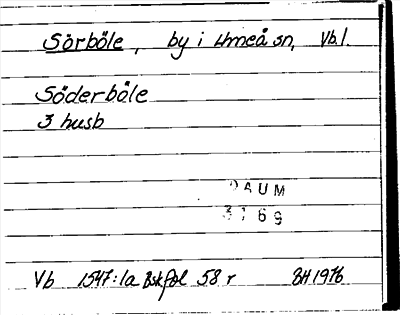 Sörböle, by i Umeå sn, Vb.l.
Söderbôle
3 husb
DAUM
3769
Vb 1547:1a Bskfol 58 r BH 1976